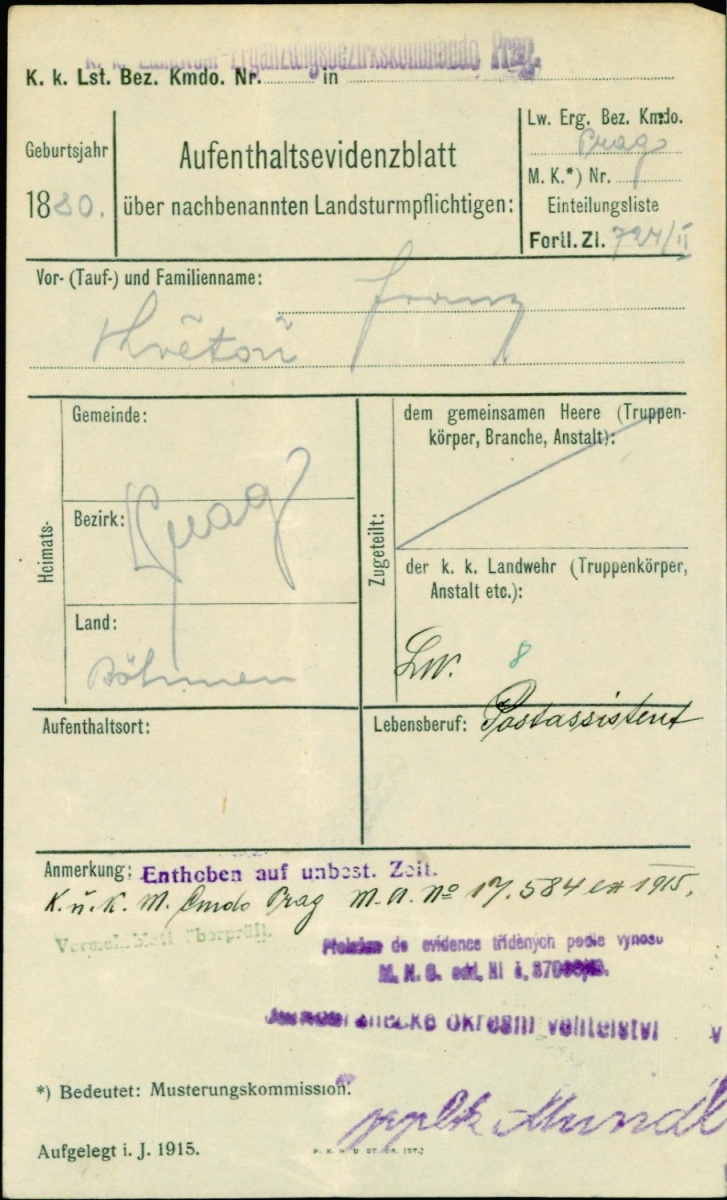 K. k. Landsturm-Ergänzungsbezirkskommando Prag.
K. k. Lst. Bez. Kmdo. Nr. in
Geburtsjahr
1880.
Aufenthaltsevidenzblatt
über nachbenannten Landsturmpflichtigen:
Lw. Erg. Bez. Kmdo.
Prag
M. K.*) Nr.
Einteilungsliste
Fortl. Zl. 724/II
Vor- (Tauf-) und Familienname:
Franz
Květoň
Heimats-
Gemeinde:
Bezirk:
Prag
Land:
Böhmen
Zugeteilt:
dem gemeinsamen Heere (Truppen-
körper, Branche, Anstalt):
der k. k. Landwehr (Truppenkörper,
Anstalt etc.):
Lw. 8
Aufenthaltsort:
Lebensberuf: Postassistent
Anmerkung: Enthoben auf unbest. Zeit.
K. u. K. M. Cmdo Prag M. A. No 17.584 ex 1915.
Vormerkblatt überprüft.
de evidence tříděných podle vynosu
M. N. O. odd. č.
okresní velitelství v
*) Bedeutet: Musterungskommission.
pplk Mundl
Aufgelegt i. J. 1915.